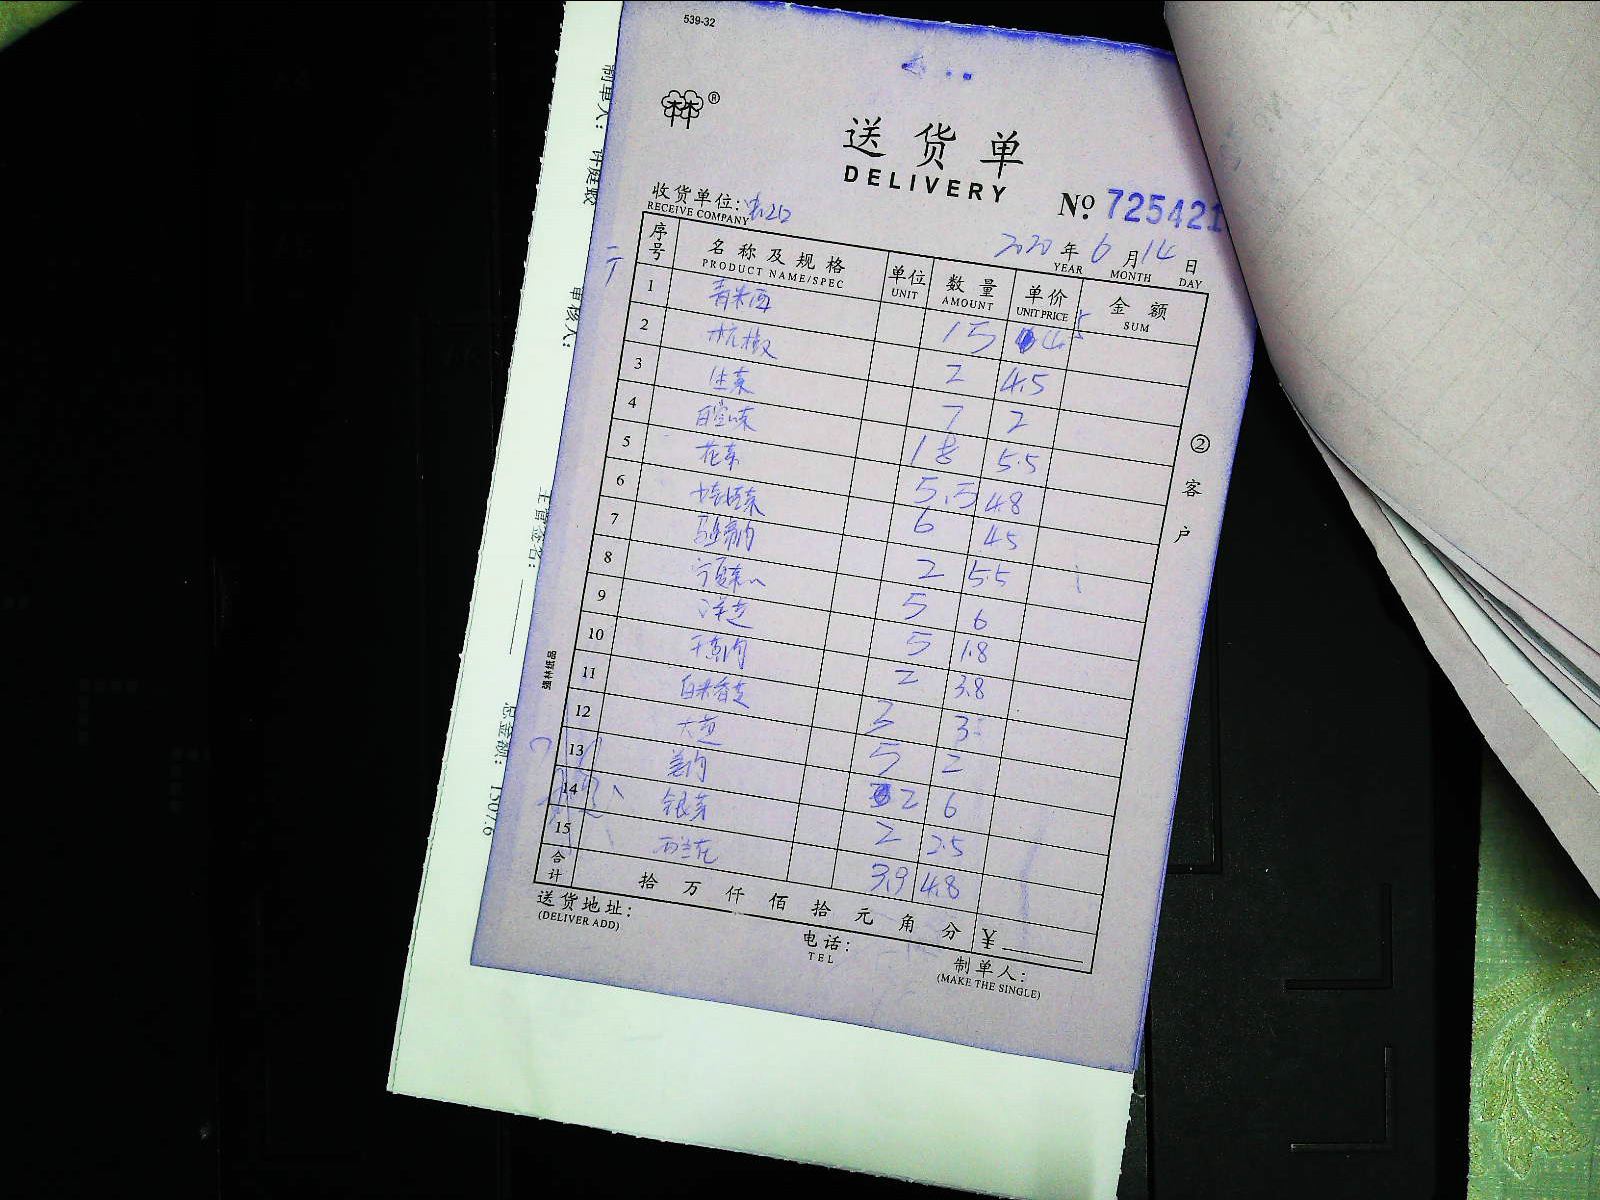 539-32
®
送货单
DELIVERY
收货单位:
RECEIVE COMPANY
No. 725421
2020 年 6 月 14 日
YEAR MONTH DAY
序号 名称及规格 单位 数量 单价 金额
PRODUCT NAME/SPEC UNIT AMOUNT UNIT PRICE SUM
1 青米西 15 4.5
2 杭椒 2 4.5
3 生菜 7 2
4 18 5.5
5 花菜 5.5 4.8
6 6 4.5
7 2 5.5
8 5 6
9 洋芝 5 1.8
10 2 3.8
11 3 3
12 5 2
13 姜肉 2 6
14 银芽 2 2.5
15 西兰花 3.9 4.8
合计 拾 万 仟 佰 拾 元 角 分 ¥
送货地址:
(DELIVER ADD)
电话:
TEL
制单人:
(MAKE THE SINGLE)
② 客户
强林纸品
制单人: 许庭
审核人:
主管签名:
总金额: 1507.6